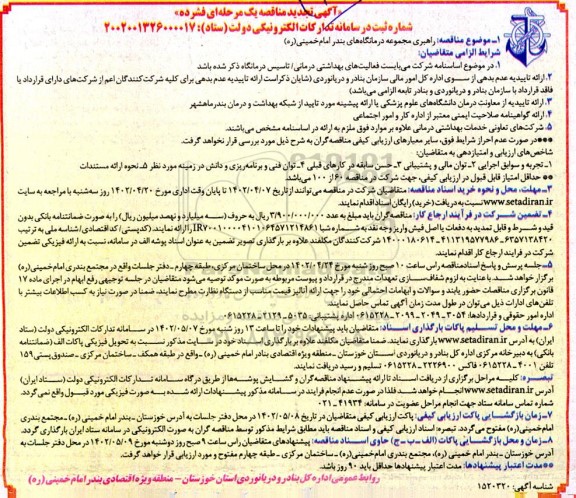 «آگهی تجدید مناقصه یک مرحله‌ای فشرده»
شماره ثبت در سامانه تدارکات الکترونیکی دولت (ستاد): ۲۰۰۲۰۰۱۳۲۶۰۰۰۰۱۷
۱-موضوع مناقصه: راهبری مجموعه درمانگاه‌های بندر امام خمینی(ره)
شرایط الزامی متقاضیان:
۱. در موضوع اساسنامه شرکت می‌بایست فعالیت‌های بهداشتی درمانی/ تاسیس درمانگاه ذکر شده باشد
۲. ارائه تاییدیه عدم بدهی از سوی اداره کل امور مالی سازمان بنادر و دریانوردی (شایان ذکر است ارائه تاییدیه عدم بدهی برای کلیه شرکت‌کنندگان اعم از شرکت‌های دارای قرارداد یا
فاقد قرارداد با سازمان بنادر و دریانوردی و بنادر تابعه الزامی می‌باشد)
۳. ارائه تاییدیه از معاونت درمان دانشگاه‌های علوم پزشکی یا ارائه پیشینه مورد تایید از شبکه بهداشت و درمان بندرماهشهر
۴. ارائه گواهینامه صلاحیت ایمنی معتبر از اداره کار و امور اجتماعی
۵. شرکت‌های تعاونی خدمات بهداشتی درمانی علاوه بر موارد فوق ملزم به ارائه در اساسنامه مشخص می‌باشند.
***در صورت عدم احراز شرایط فوق، سایر معیارهای ارزیابی کیفی مناقصه‌گران به شرح ذیل مورد بررسی قرار نخواهد گرفت.
شاخص‌های ارزیابی و امتیازدهی به متقاضیان:
۱-تجربه و سوابق اجرایی ۲-توان مالی و پشتیبانی ۳-حسن سابقه در کارهای قبلی ۴-توان فنی و برنامه‌ریزی و دانش در زمینه مورد نظر ۵-نحوه ارائه مستندات
** حداقل امتیاز قابل قبول در ارزیابی کیفی، جهت شرکت در مناقصه ۶۰ از ۱۰۰ می‌باشد.
۳-مهلت، محل و نحوه خرید اسناد مناقصه: متقاضیان شرکت در مناقصه می‌توانند از تاریخ ۱۴۰۲/۰۴/۰۷ تا پایان وقت اداری مورخ ۱۴۰۲/۰۴/۲۰ روز سه‌شنبه با مراجعه به سایت
www.setadiran.ir نسبت به دریافت (خرید) رایگان اسناد اقدام نمایند.
۴-تضمین شرکت در فرآیند ارجاع کار: مناقصه‌گران باید مبلغ به عدد ۳/۹۰۰/۰۰۰/۰۰۰ ریال به حروف (سه میلیارد و نهصد میلیون ریال) را به صورت ضمانتنامه بانکی بدون
قید و شرط و قابل تمدید به دفعات یا اصل فیش واریز وجه نقد به شماره شبا IR۷۰۰۱۰۰۰۰۴۱۰۱۰۶۴۵۷۱۲۱۴۸۶۱ را ارائه نمایند. (کدپستی/ کد اقتصادی/ شناسه ملی به ترتیب
۶۳۵۷۱۳۸۴۲۰-۴۱۱۳۱۹۵۷۷۹۸۶-۱۴۰۰۰۱۸۰۶۱۴) شرکت‌کنندگان مکلفند علاوه بر بارگذاری تصویر تضمین به عنوان اسناد پوشه الف در سامانه، نسبت به ارائه فیزیکی تضمین
شرکت در فرآیند ارجاع کار اقدام نمایند.
۵-جلسه پرسش و پاسخ اسناد مناقصه راس ساعت ۱۰ صبح روز شنبه مورخ ۱۴۰۲/۰۴/۲۴ در محل ساختمان مرکزی-طبقه چهارم-دفتر جلسات واقع در مجتمع بندری امام خمینی(ره)
برگزار خواهد شد. با عنایت به لزوم شفاف‌سازی تعهدات مندرج در قرارداد و پیوست مربوطه به صورت موکد توصیه می‌شود متقاضیان در جلسه توجیهی رفع ابهام در اجرای ماده ۱۷
قانون برگزاری مناقصات حضور یابند و سوالات و ابهامات احتمالی خود را جهت ارائه آنالیز قیمت مناسب از دستگاه نظارت مطرح نمایند. ضمنا در صورت نیاز به کسب اطلاعات بیشتر با
تلفن‌های ادارات ذیل می‌توان در طول مدت زمان آگهی تماس حاصل نمایند:
اداره امور حقوقی و قراردادها: ۳۰۵۴-۲۰۴۹-۲۰۹۹-۰۶۱۵۲۲۸ اداره پشتیبانی: ۵۰۳۵-۲۱۲۹-۰۶۱۵۲۲۸
۶-مهلت و محل تسلیم پاکات بارگذاری اسناد: متقاضیان باید پیشنهادات خود را تا ساعت ۱۳ روز شنبه مورخ ۱۴۰۲/۰۵/۰۷ در سامانه تدارکات الکترونیکی دولت (ستاد
ایران) به آدرس www.setadiran.ir بارگذاری نمایند. ضمنا متقاضیان مکلفند علاوه بر بارگذاری اسناد خود در سایت مذکور نسبت به تحویل فیزیکی پاکات الف (ضمانتنامه
بانکی) به دبیرخانه مرکزی اداره کل بنادر و دریانوردی استان خوزستان -منطقه ویژه اقتصادی بندر امام خمینی (ره)-واقع در طبقه همکف -ساختمان مرکزی -صندوق پستی ۱۵۹
تلفن ۴۰۰۱-۰۶۱۵۲۲۸ فاکس ۲۲۲۶۹۰۰-۰۶۱۵۲۲۸ تسلیم و رسید دریافت نمایند.
تبصره: کلیه مراحل برگزاری از دریافت اسناد تا ارائه پیشنهاد مناقصه‌گران و گشایش پوشه‌ها از طریق درگاه سامانه تدارکات الکترونیکی دولت (ستاد ایران)
به آدرس www.setadiran.ir انجام خواهد شد لذا در صورت عدم انجام فرآیند در سامانه مذکور پیشنهادات ارائه شده به صورت فیزیکی مورد قبول واقع نمی‌گردد.
شماره تماس سامانه ستاد جهت انجام مراحل عضویت در سامانه: ۴۱۹۳۴-۰۲۱
۷-زمان بازگشایی پاکت ارزیابی کیفی: پاکت ارزیابی کیفی متقاضیان در تاریخ ۱۴۰۲/۰۵/۰۸ در محل دفتر جلسات به آدرس خوزستان -بندر امام خمینی (ره)-مجتمع بندری
امام خمینی(ره) مفتوح می‌گردد. تبصره: اسناد ارزیابی کیفی و اسناد مناقصه باید مطابق شرایط مذکور توسط مناقصه گران به صورت الکترونیکی در سامانه ستاد ایران بارگذاری گردد.
۸-زمان و محل بازگشایی پاکات (الف-ب-ج) حاوی اسناد مناقصه: پیشنهادهای متقاضیان راس ساعت ۹ صبح روز دوشنبه مورخ ۱۴۰۲/۰۵/۰۹ در محل دفتر جلسات به
آدرس خوزستان -بندر امام خمینی (ره)، مجتمع بندری امام خمینی(ره)- ساختمان مرکزی -طبقه چهارم مفتوح و مورد ارزیابی قرار خواهد گرفت.
**مدت اعتبار پیشنهادها: مدت اعتبار پیشنهادها حداقل باید ۹۰ روز باشد.
روابط عمومی اداره کل بنادر و دریانوردی استان خوزستان - منطقه ویژه اقتصادی بندر امام خمینی (ره)
شناسه آگهی: ۱۵۲۰۳۲۰